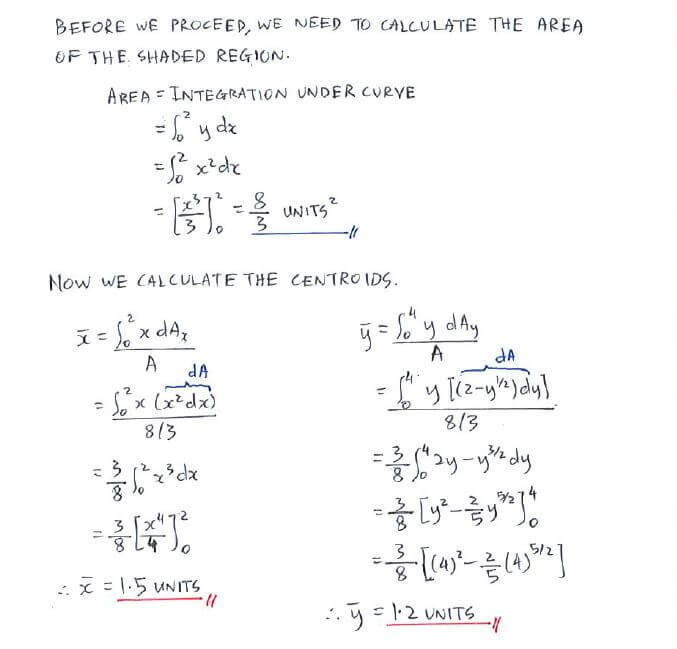 BEFORE WE PROCEED, WE NEED TO CALCULATE THE AREA
OF THE SHADED REGION.
AREA = INTEGRATION UNDER CURVE
= ∫₀² y dx
= ∫₀² x² dx
= [x³/3]₀² = 8/3 UNITS²
NOW WE CALCULATE THE CENTROIDS.
x̄ = ∫₀² x dAₓ / A
dA
= ∫₀² x (x² dx) / 8/3
= 3/8 ∫₀² x³ dx
= 3/8 [x⁴/4]₀²
∴ x̄ = 1.5 UNITS
ȳ = ∫₀⁴ y dAy / A
dA
= ∫₀⁴ y [(2-y^1/2) dy] / 8/3
= 3/8 ∫₀⁴ 2y - y^3/2 dy
= 3/8 [y² - 2/5 y^5/2]₀⁴
= 3/8 [(4)² - 2/5 (4)^5/2]
∴ ȳ = 1.2 UNITS